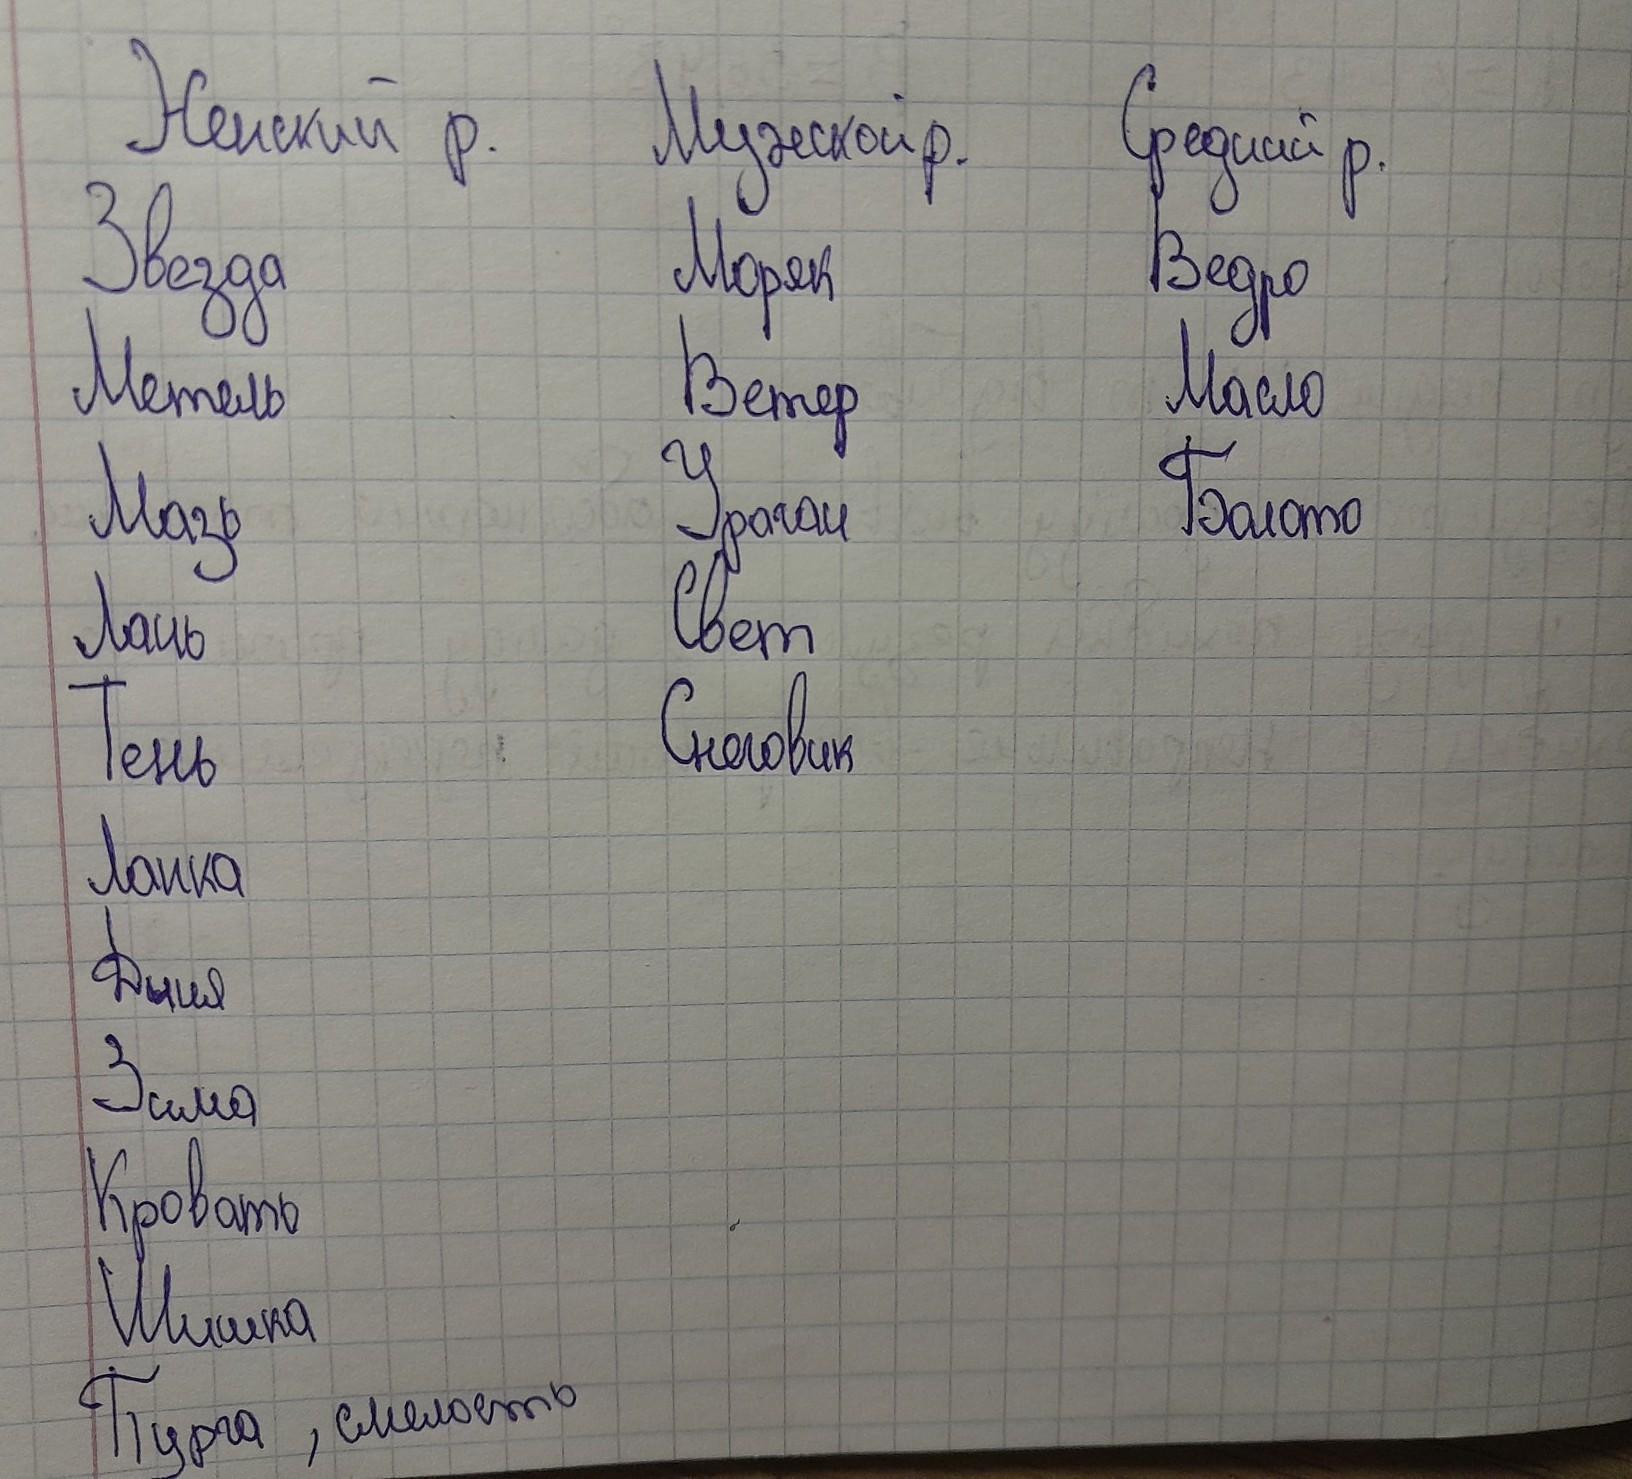 Женский р. Мужской р. Средний р.
Звезда Моряк Ведро
Метель Ветер Масло
Мазь Ураган Болото
Лань Свет
Тень Снеговик
Лапка
Дыня
Зима
Кровать
Шишка
Пурга, смелость